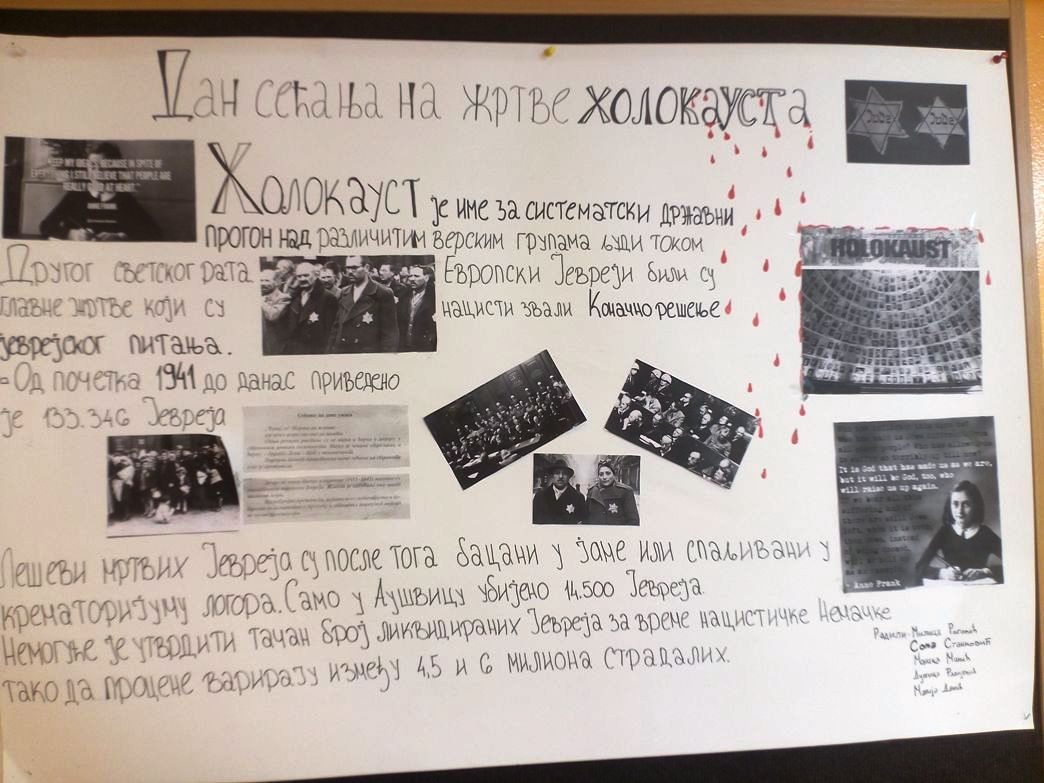 Дан сећања на жртве ХОЛОКАУСТА
Jude Jude
"KEEP MY IDEALS, BECAUSE IN SPITE OF
EVERYTHING I STILL BELIEVE THAT PEOPLE ARE
REALLY GOOD AT HEART."
ANNE FRANK
Холокауст је име за систематски државни
прогон над различитим верским групама људи током
Другог светског рата Европски Јевреји били су
главне жртве који су нацисти звали Коначно решење
јеврејског питања.
HOLOKAUST
- Од почетка 1941 до данас приведено
је 133.346 Јевреја
It is God that has made us as we are,
but it will be God, too, who
will raise us up again.
- Anne Frank
Лешеви мртвих Јевреја су после тога бацани у јаме или спаљивани у
крематоријуму логора. Само у Аушвицу убијено 14.500 Јевреја.
Немогуће је утврдити тачан број ликвидираних Јевреја за време нацистичке Немачке
тако да процене варирају између 4,5 и 6 милиона страдалих.
Радили: Милица
Соња Станковић